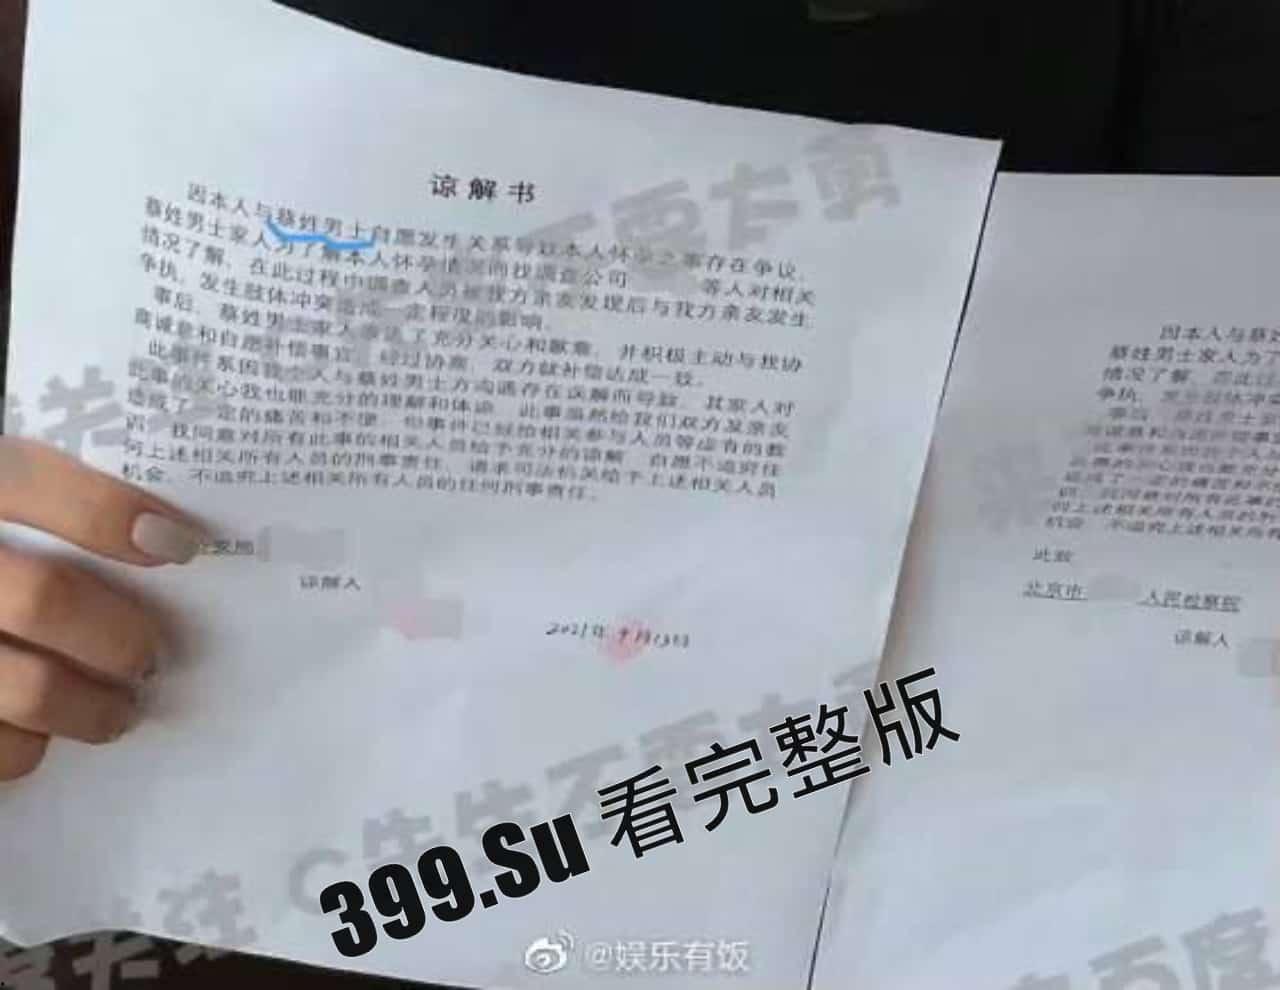 谅解书
因本人与蔡姓男士自愿发生关系导致本人怀孕之事存在争议，
蔡姓男士家人为了解本人怀孕情况而找调查公司 等人对相关
情况了解，在此过程中调查人员被我方亲友发现后与我方亲友发生
争执，发生肢体冲突造成一定程度的影响。
事后，蔡姓男士家人表达了充分关心和歉意，并积极主动与我协
商诚意和自愿补偿事宜，经过协商，双方就补偿达成一致。
此事件系因我个人与蔡姓男士方沟通存在误解而导致，其家人对
此事的关心我也能充分的理解和体谅，此事虽然给我们双方及亲友
造成了一定的痛苦和不便，但事件已经给相关参与人员等应有的教
训，我同意对所有此事的相关人员给予充分的谅解，自愿不追究任
何上述相关所有人员的刑事责任，请求司法机关给予上述相关人员
机会，不追究上述相关所有人员的任何刑事责任。
安局
谅解人
2021年9月13日
因本人与蔡
蔡姓男士家人为了
情况了解，在此过
争执，发生肢体冲突
此致
北京市 人民检察院
谅解人
399.Su 看完整版
@娱乐有饭